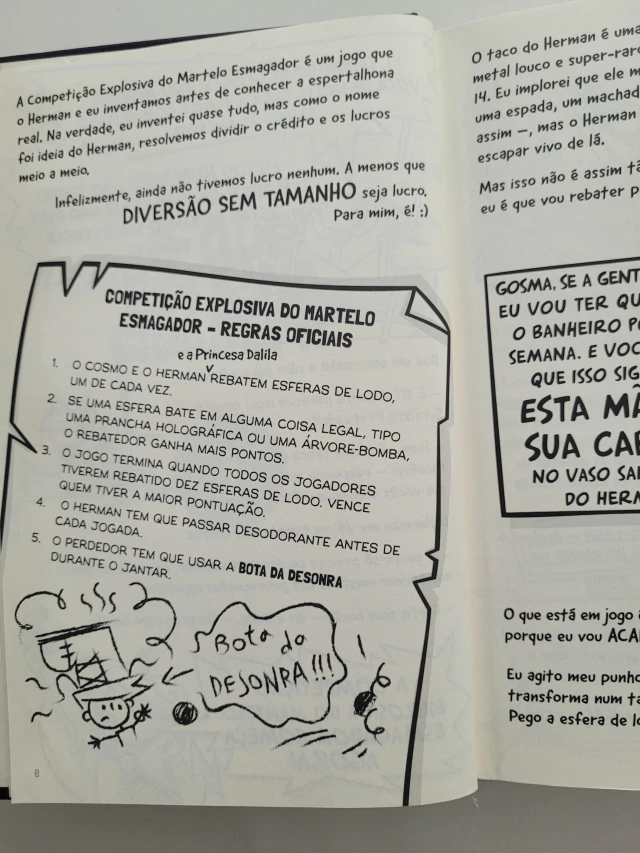 A Competição Explosiva do Martelo Esmagador é um jogo que
o Herman e eu inventamos antes de conhecer a espertalhona
real. Na verdade, eu inventei quase tudo, mas como o nome
foi ideia do Herman, resolvemos dividir o crédito e os lucros
meio a meio.
Infelizmente, ainda não tivemos lucro nenhum. A menos que
DIVERSÃO SEM TAMANHO seja lucro.
Para mim, é! :)
COMPETIÇÃO EXPLOSIVA DO MARTELO
ESMAGADOR – REGRAS OFICIAIS
e a Princesa Dalila
1. O COSMO E O HERMAN REBATEM ESFERAS DE LODO,
UM DE CADA VEZ.
2. SE UMA ESFERA BATE EM ALGUMA COISA LEGAL, TIPO
UMA PRANCHA HOLOGRÁFICA OU UMA ÁRVORE-BOMBA,
O REBATEDOR GANHA MAIS PONTOS.
3. O JOGO TERMINA QUANDO TODOS OS JOGADORES
TIVEREM REBATIDO DEZ ESFERAS DE LODO. VENCE
QUEM TIVER A MAIOR PONTUAÇÃO.
4. O HERMAN TEM QUE PASSAR DESODORANTE ANTES DE
CADA JOGADA.
5. O PERDEDOR TEM QUE USAR A BOTA DA DESONRA
DURANTE O JANTAR.
Bota da
DESONRA!!!
8
O taco do Herman é uma
metal louco e super-rar
14. Eu implorei que ele m
uma espada, um machad
assim –, mas o Herman
escapar vivo de lá.
Mas isso não é assim t
eu é que vou rebater p
GOSMA, SE A GENT
EU VOU TER QU
O BANHEIRO P
SEMANA. E VOC
QUE ISSO SIG
ESTA MA
SUA CA
NO VASO SA
DO HERM
O que está em jogo
porque eu vou ACA
Eu agito meu punho
transforma num ta
Pego a esfera de lo